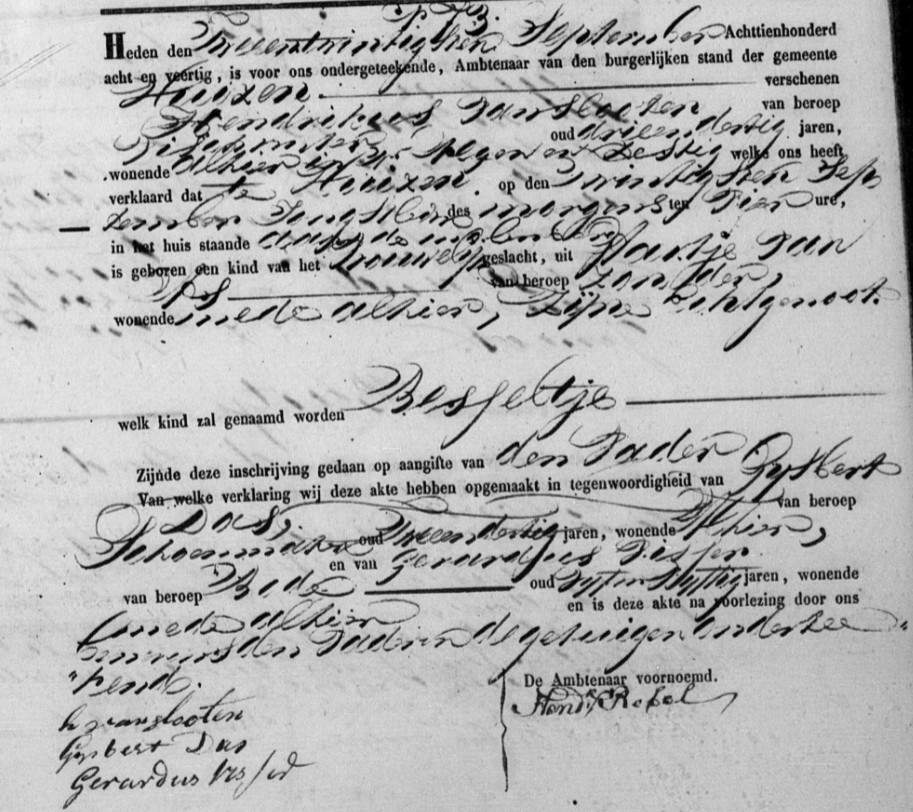 Heden den Tweentwintigsten September Achttienhonderd
acht en veertig, is voor ons ondergeteekende, Ambtenaar van den burgerlijken stand der gemeente
Huizen verschenen
Hendrikus van Slooten van beroep
oud drieendertig jaren,
wonende alhier welke ons heeft
verklaard dat te Huizen op den Twintigsten Sep
tember Jongstleden des morgens ten Vier ure,
in het huis staande
is geboren een kind van het Vrouwelijk geslacht, uit Hartje van
van beroep zonder,
wonende mede alhier, zijne Echtgenoot.
welk kind zal genaamd worden Besseltje
Zijnde deze inschrijving gedaan op aangifte van den Vader
Van welke verklaring wij deze akte hebben opgemaakt in tegenwoordigheid van Gysbert
Das, van beroep
Schoenmaker oud jaren, wonende Alhier,
en van Gerardus Visser
van beroep Bode oud jaren, wonende
mede alhier en is deze akte na voorlezing door ons
benevens den Vader en de getuigen onderteе
kend.
De Ambtenaar voornoemd.
h van slooten
Gysbert Das
Gerardus Visser